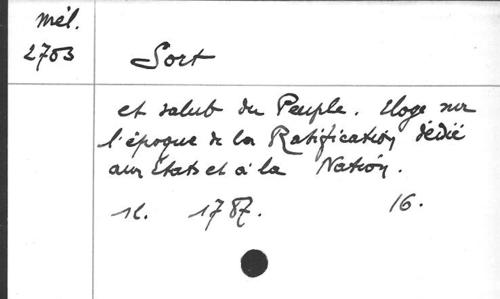 Mél.
2703
Sort
et salut du Peuple. Eloge sur
l'époque de la Ratification dédié
aux Etats et à la Nation.
1787.
16.